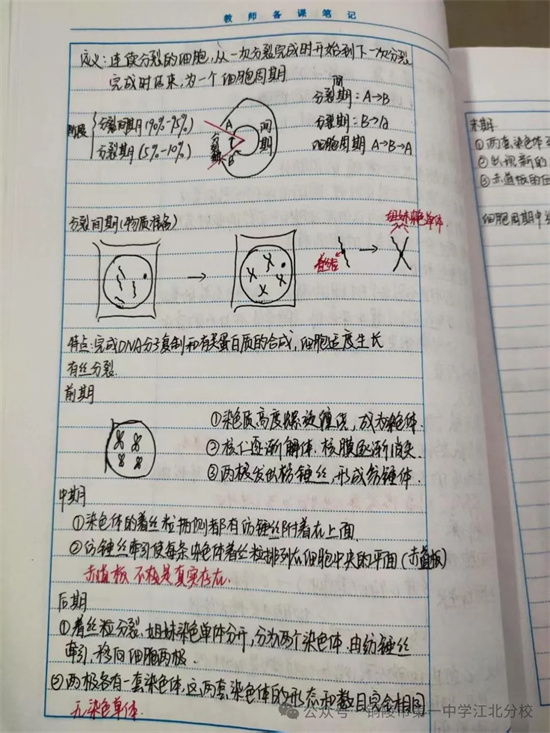 教师备课笔记
定义:连续分裂的细胞,从一次分裂完成时开始到下一次分裂
完成时结束,为一个细胞周期
阶段
分裂间期(90%-95%)
分裂期(5%-10%)
A
B
分裂期
间期
间
分裂期:A→B
分裂期:B→A
细胞周期 A→B→A
分裂间期(物质准备)
着丝粒
姐妹染色单体
特点:完成DNA分子复制和有关蛋白质的合成,细胞适度生长
有丝分裂
前期
①染色质高度螺旋缠绕,成为染色体.
②核仁逐渐解体.核膜逐渐消失.
③两极发出纺锤丝,形成纺锤体.
中期
①染色体的着丝粒两侧都有纺锤丝附着在上面.
②纺锤丝牵引使每条染色体着丝粒排列在细胞中央的平面(赤道板)
赤道板不是真实存在.
后期
①着丝粒分裂,姐妹染色单体分开,分为两个染色体.由纺锤丝
牵引,移向细胞两极.
②两极各有一套染色体,这两套染色体的形态和数目完全相同
无染色单体.
末期
①两套染色体
②出现新的
③赤道板的位
细胞周期中
公众号·铜陵市第一中学江北分校